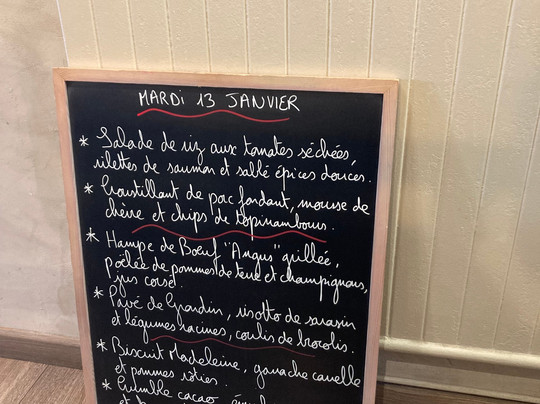 MARDI 13 JANVIER
* Salade de riz aux tomates séchées,
rillettes de saumon et sablé épices douces.
* Croustillant de porc fondant, mousse de
chèvre et chips de topinambours.
* Hampe de Bœuf "Angus" grillée,
poêlée de pommes de terre et champignons,
jus corsé.
* Pavé de Grandin, risotto de sarrasin
et légumes racines, coulis de brocolis.
* Biscuit Madeleine, ganache canelle
et pommes rôties.
* Crumble cacao,
et